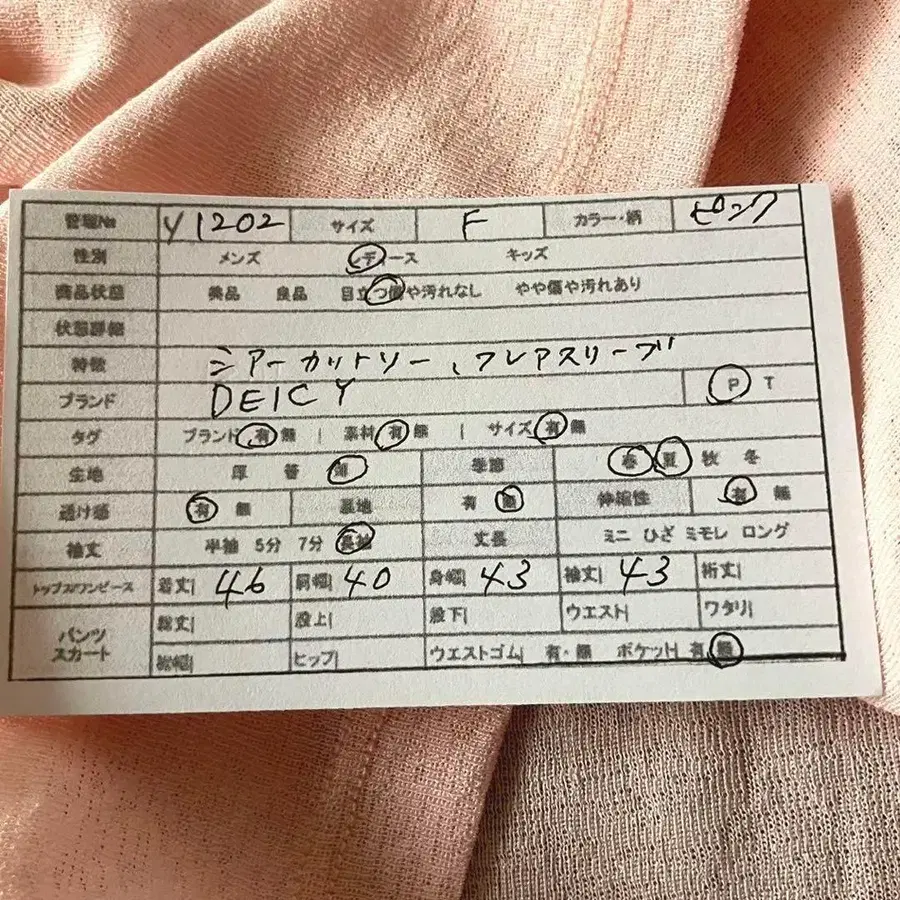 管理No Y1202 サイズ F カラー・柄 ピンク
性別 メンズ レディース キッズ
商品状態 美品 良品 目立つ傷や汚れなし やや傷や汚れあり
状態詳細
特徴 シアーカットソー、フレアスリーブ
ブランド DEICY P T
タグ ブランド 有 無 | 素材 有 無 | サイズ 有 無
生地 厚 普 薄 季節 春 夏 秋 冬
透け感 有 無 裏地 有 無 伸縮性 有 無
袖丈 半袖 5分 7分 長袖 丈長 ミニ ひざ ミモレ ロング
トップス/ワンピース 着丈| 46 肩幅| 40 身幅| 43 袖丈| 43 裄丈|
パンツ スカート 総丈| 股上| 股下| ウエスト| ワタリ|
裾幅| ヒップ| ウエストゴム| 有・無 ポケット| 有 無